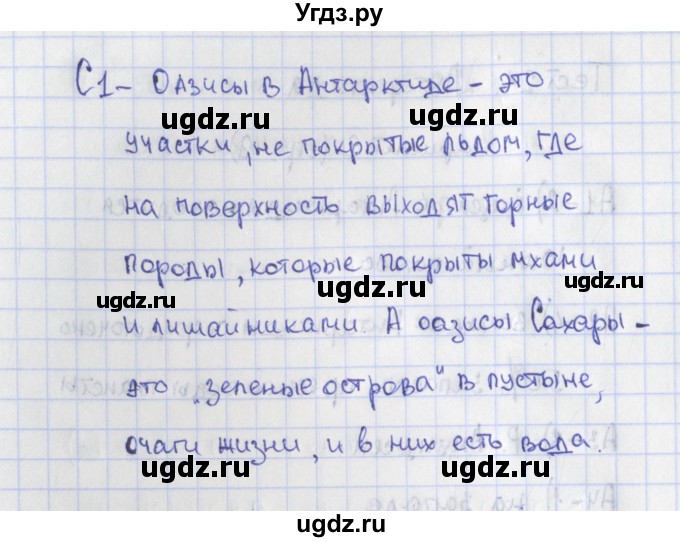 Угдз.ру
С1 – Оазисы в Антарктиде – это
ugdz.ru ugdz.ru
участки, не покрытые льдом, где
на поверхность выходят горные
ugdz.ru
породы, которые покрыты мхами
ugdz.ru ugdz.ru
и лишайниками. А оазисы Сахары –
ugdz.ru
это „зеленые острова“ в пустыне,
ugdz.ru
очаги жизни, и в них есть вода.
ugdz.ru ugdz.ru
ugdz.ru